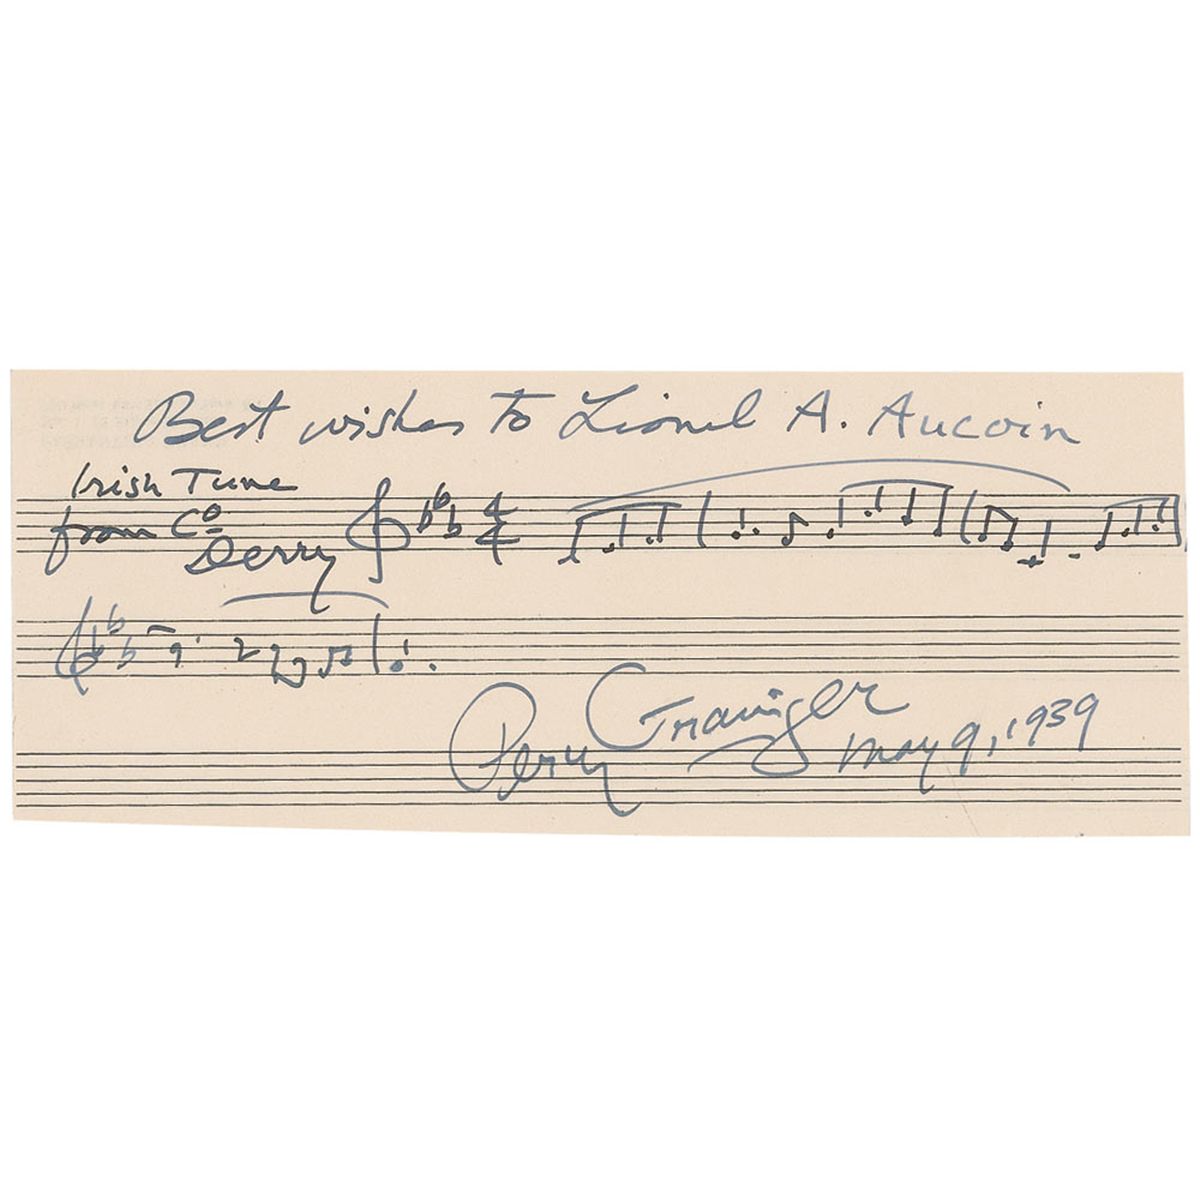 Best wishes to Lionel A. Aucoin
Irish Tune
from Co
Derry
Percy Grainger
May 9, 1939